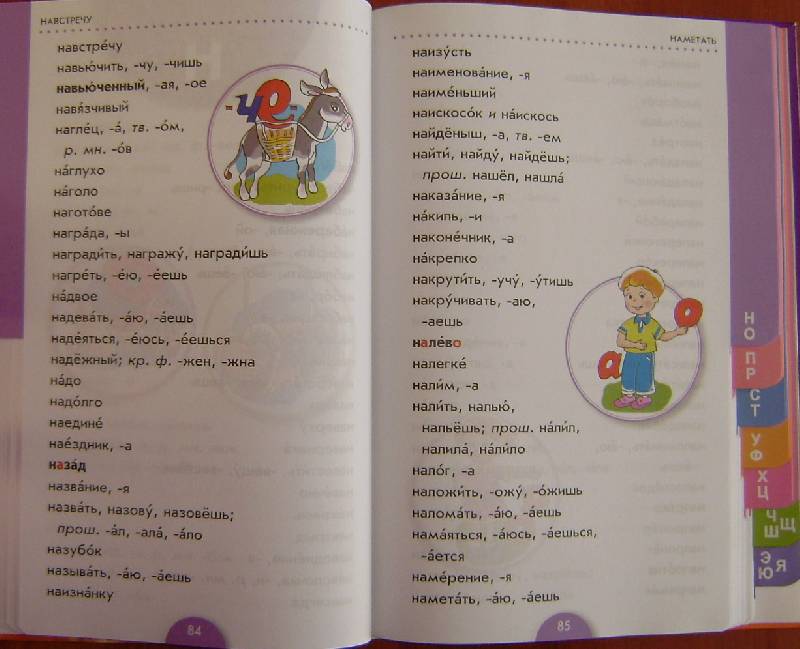 НАВСТРЕЧУ
навстре́чу
навью́чить, -чу, -чишь
навью́ченный, -ая, -ое
навя́зчивый
нагле́ц, -а́, тв. -о́м,
р. мн. -о́в
на́глухо
на́голо
нагото́ве
награ́да, -ы
награди́ть, награжу́, награди́шь
нагре́ть, -е́ю, -е́ешь
на́двое
надева́ть, -а́ю, -а́ешь
наде́яться, -е́юсь, -е́ешься
надёжный; кр. ф. -жен, -жна
на́до
надо́лго
наедине́
нае́здник, -а
наза́д
назва́ние, -я
назва́ть, назову́, назовёшь;
прош. -а́л, -ала́, -а́ло
назубо́к
называ́ть, -а́ю, -а́ешь
наизна́нку
84
-че-
НАМЕТАТЬ
наизу́сть
наименова́ние, -я
наиме́ньший
наискосо́к и на́искось
найдёныш, -а, тв. -ем
найти́, найду́, найдёшь;
прош. нашёл, нашла́
наказа́ние, -я
на́кипь, -и
наконе́чник, -а
на́крепко
накрути́ть, -учу́, -у́тишь
накру́чивать, -аю,
-аешь
нале́во
налегке́
нали́м, -а
нали́ть, налью́,
нальёшь; прош. на́ли́л,
налила́, на́ли́ло
нало́г, -а
наложи́ть, -ожу́, -о́жишь
налома́ть, -а́ю, -а́ешь
нама́яться, -а́юсь, -а́ешься,
-а́ется
наме́рение, -я
намета́ть, -а́ю, -а́ешь
85
а
о
Н
О
П
Р
С
Т
У
Ф
Х
Ц
Ч
Ш Щ
Э
Ю Я